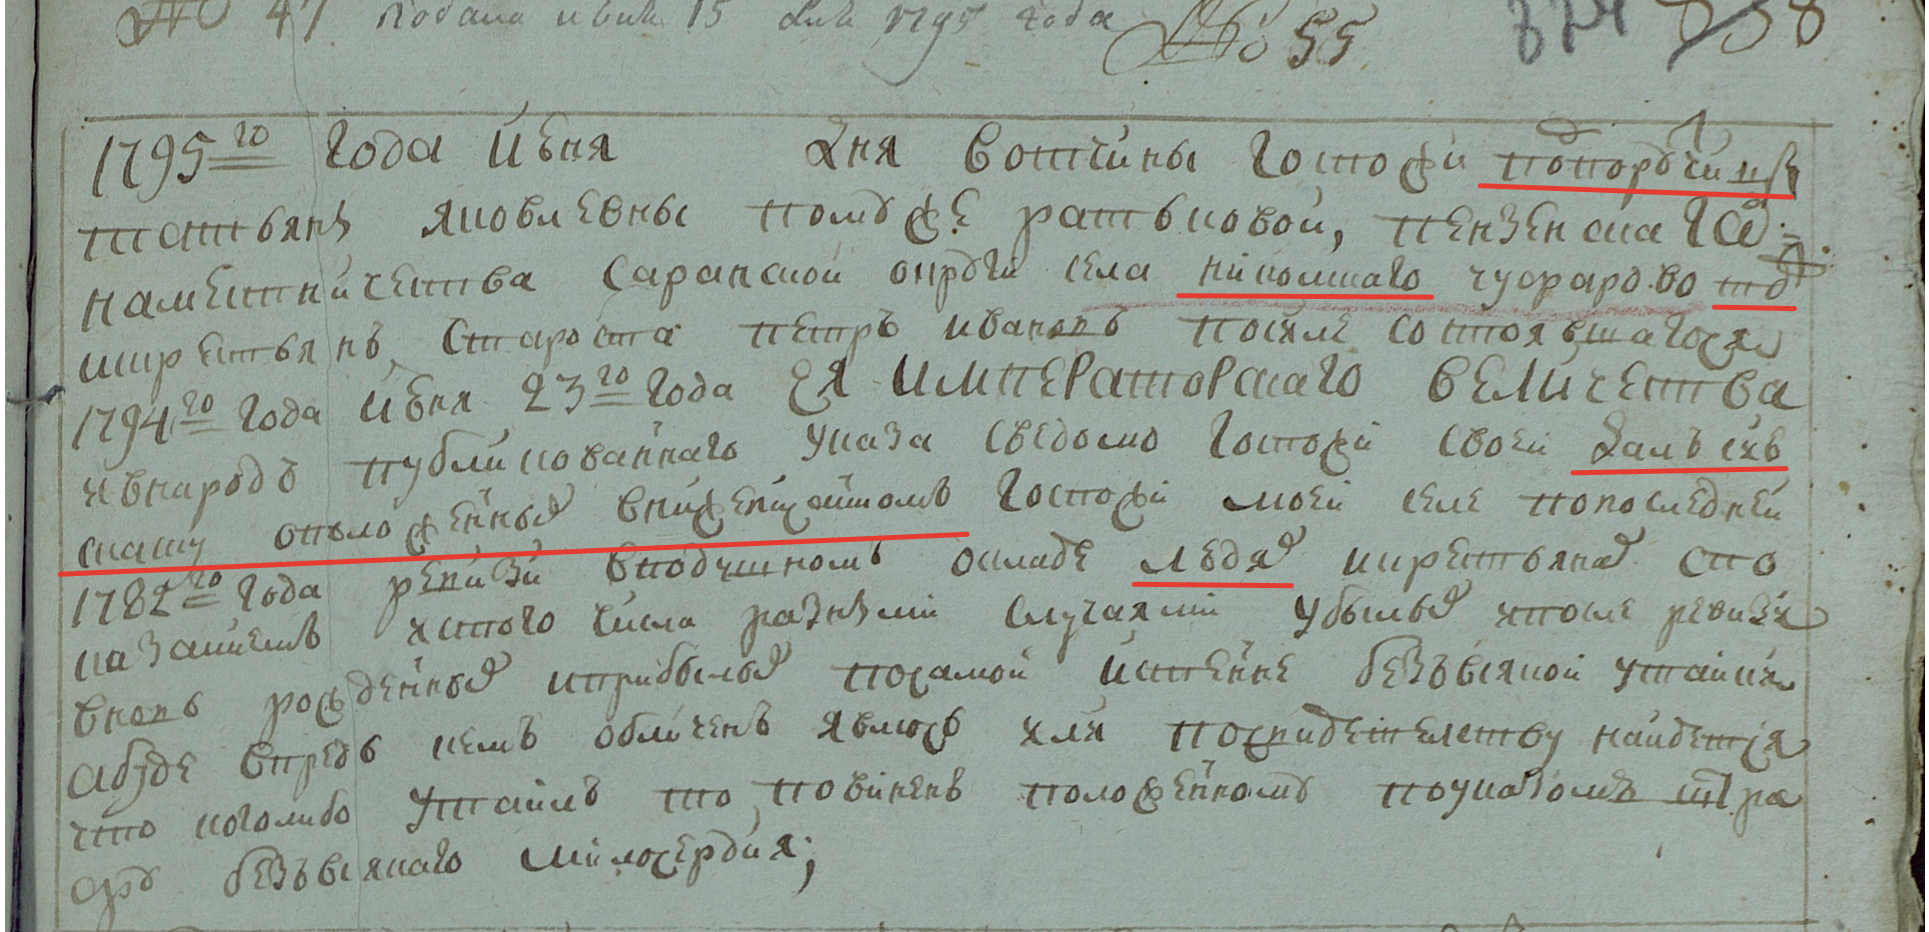 № 47 Подана июня 15 дня 1795 года № 55 874 858
1795го года июня дня вотчины Госпожи подпорутчицы
татьяны яковлевны помужѣ ратьковой, пензенскаго
наместничества саранской округи села никольскаго чуфарово тож
крестьянъ староста петръ ивановъ после состоявшагося
1794го года июня 23го года ЕЯ ИМПЕРАТОРСКАГО ВЕЛИЧЕСТВА
ивнародъ публикованнаго указа сведомо Госпожи своей далъ сию
скаску отположенныхъ внижеписанномъ Госпожи моей селе попоследней
1782го года ревизии вподушномъ окладе людяхъ икрестьянахъ сто
казаниемъ изтого числа разными случаями убылыхъ ипосле ревизии
вновь рожденныхъ иприбылыхъ посамой истенне безъвсякой утайки
абуде впредь кемъ обличенъ явлюсь или посвидетелству найдется
что коголибо утаилъ то повиненъ положенному поуказомъ штра
фу безъвсякаго милосердия;